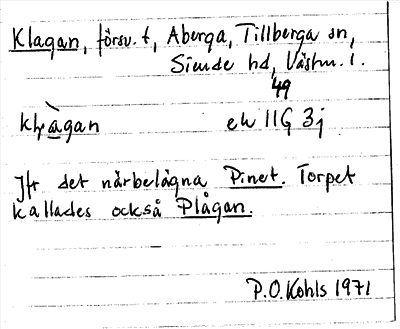 Klagan, försv. t, Aberga, Tillberga sn,
Siende hd, Västm. l.
49
klạ̀gan ek 11G 3j
Jfr det närbelägna Pinet. Torpet
kallades också Plågan.
P.O. Kohls 1971